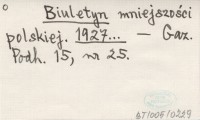 Biuletyn mniejszości
polskiej. 1927... — Gaz.
Podh. 15, nr 25.
BT/005/0229